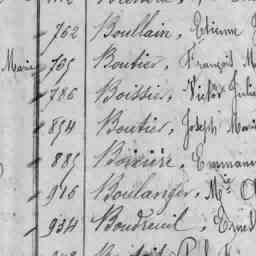 762 Boullain, Etienne
Marie 765 Boutier, François M
786 Boissier, Victor Julie
854 Boutier, Joseph Marie
885 Boissière, Emmanu
916 Boulanger, Mie Ch
934 Boudreuil, Ernest